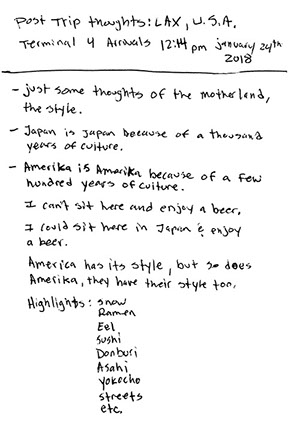 Post Trip thoughts: LAX, U.S.A.
Terminal 4 Arrivals 12:44 pm january 24th
2018
- just some thoughts of the motherland,
the style.
- Japan is Japan because of a thousand
years of culture.
- Amerika is Amerika because of a few
hundred years of culture.
I can't sit here and enjoy a beer.
I could sit here in Japan & enjoy
a beer.
America has its style, but so does
Amerika, they have their style too.
Highlights: snow
Ramen
Eel
Sushi
Donburi
Asahi
yokocho
streets
etc.